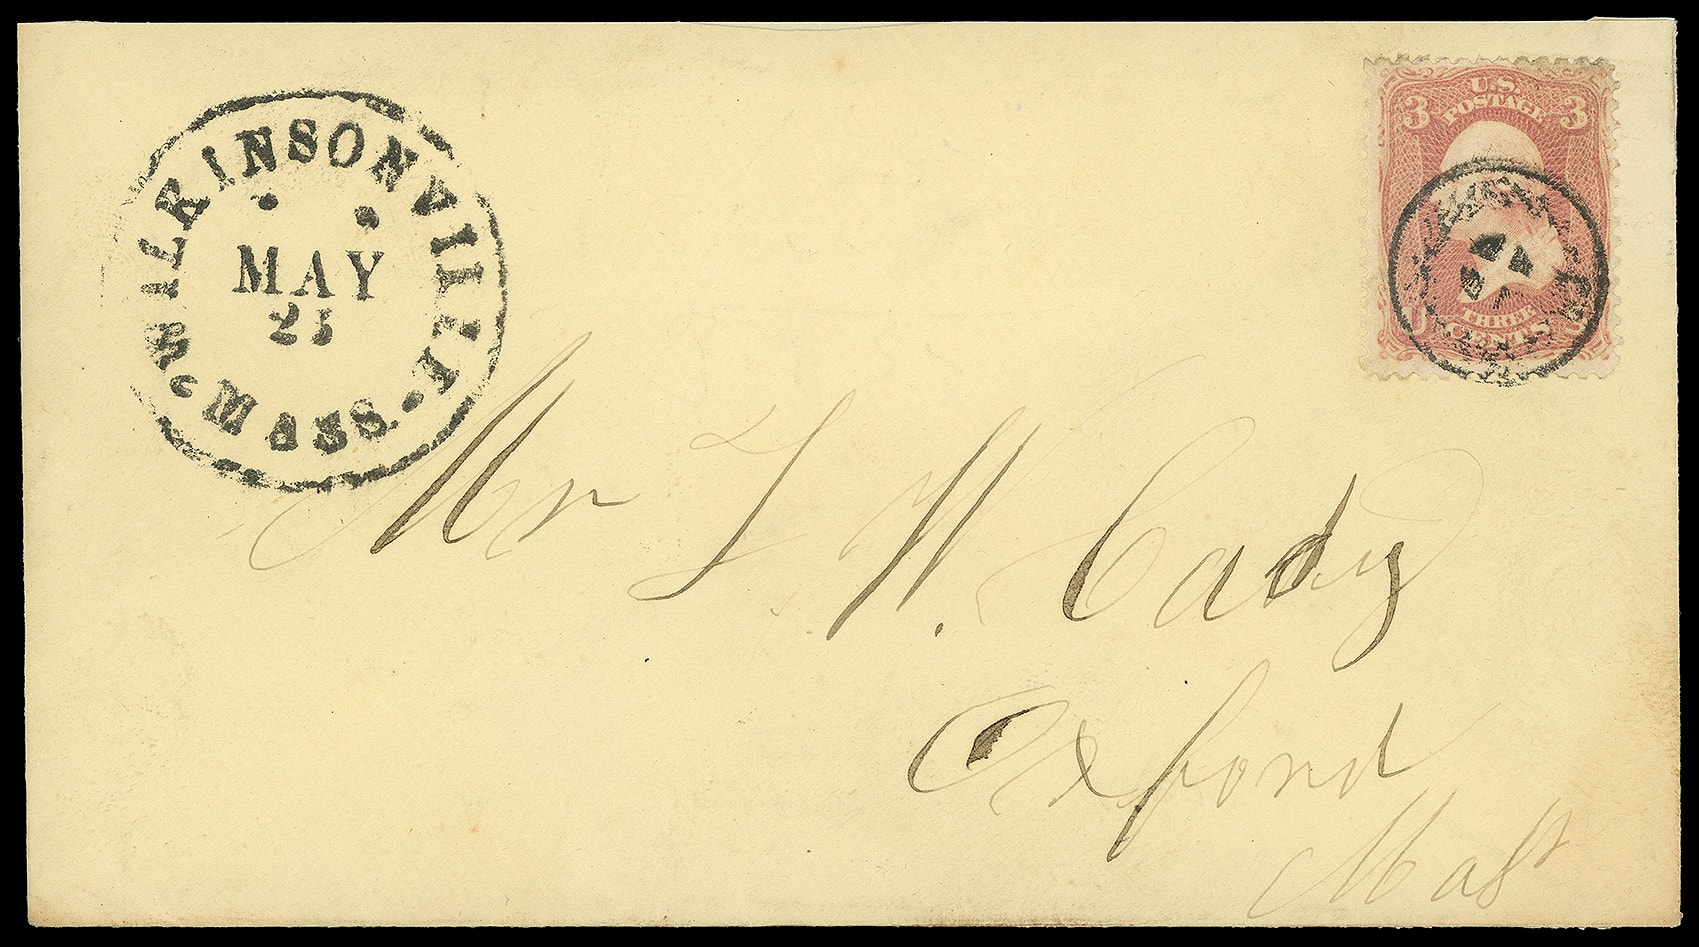 WILKINSONVILLE. MASS.
MAY
25
U.S.
POSTAGE
3 3
U S
THREE
CENTS
Mr L W. Cady
Oxford
Mass